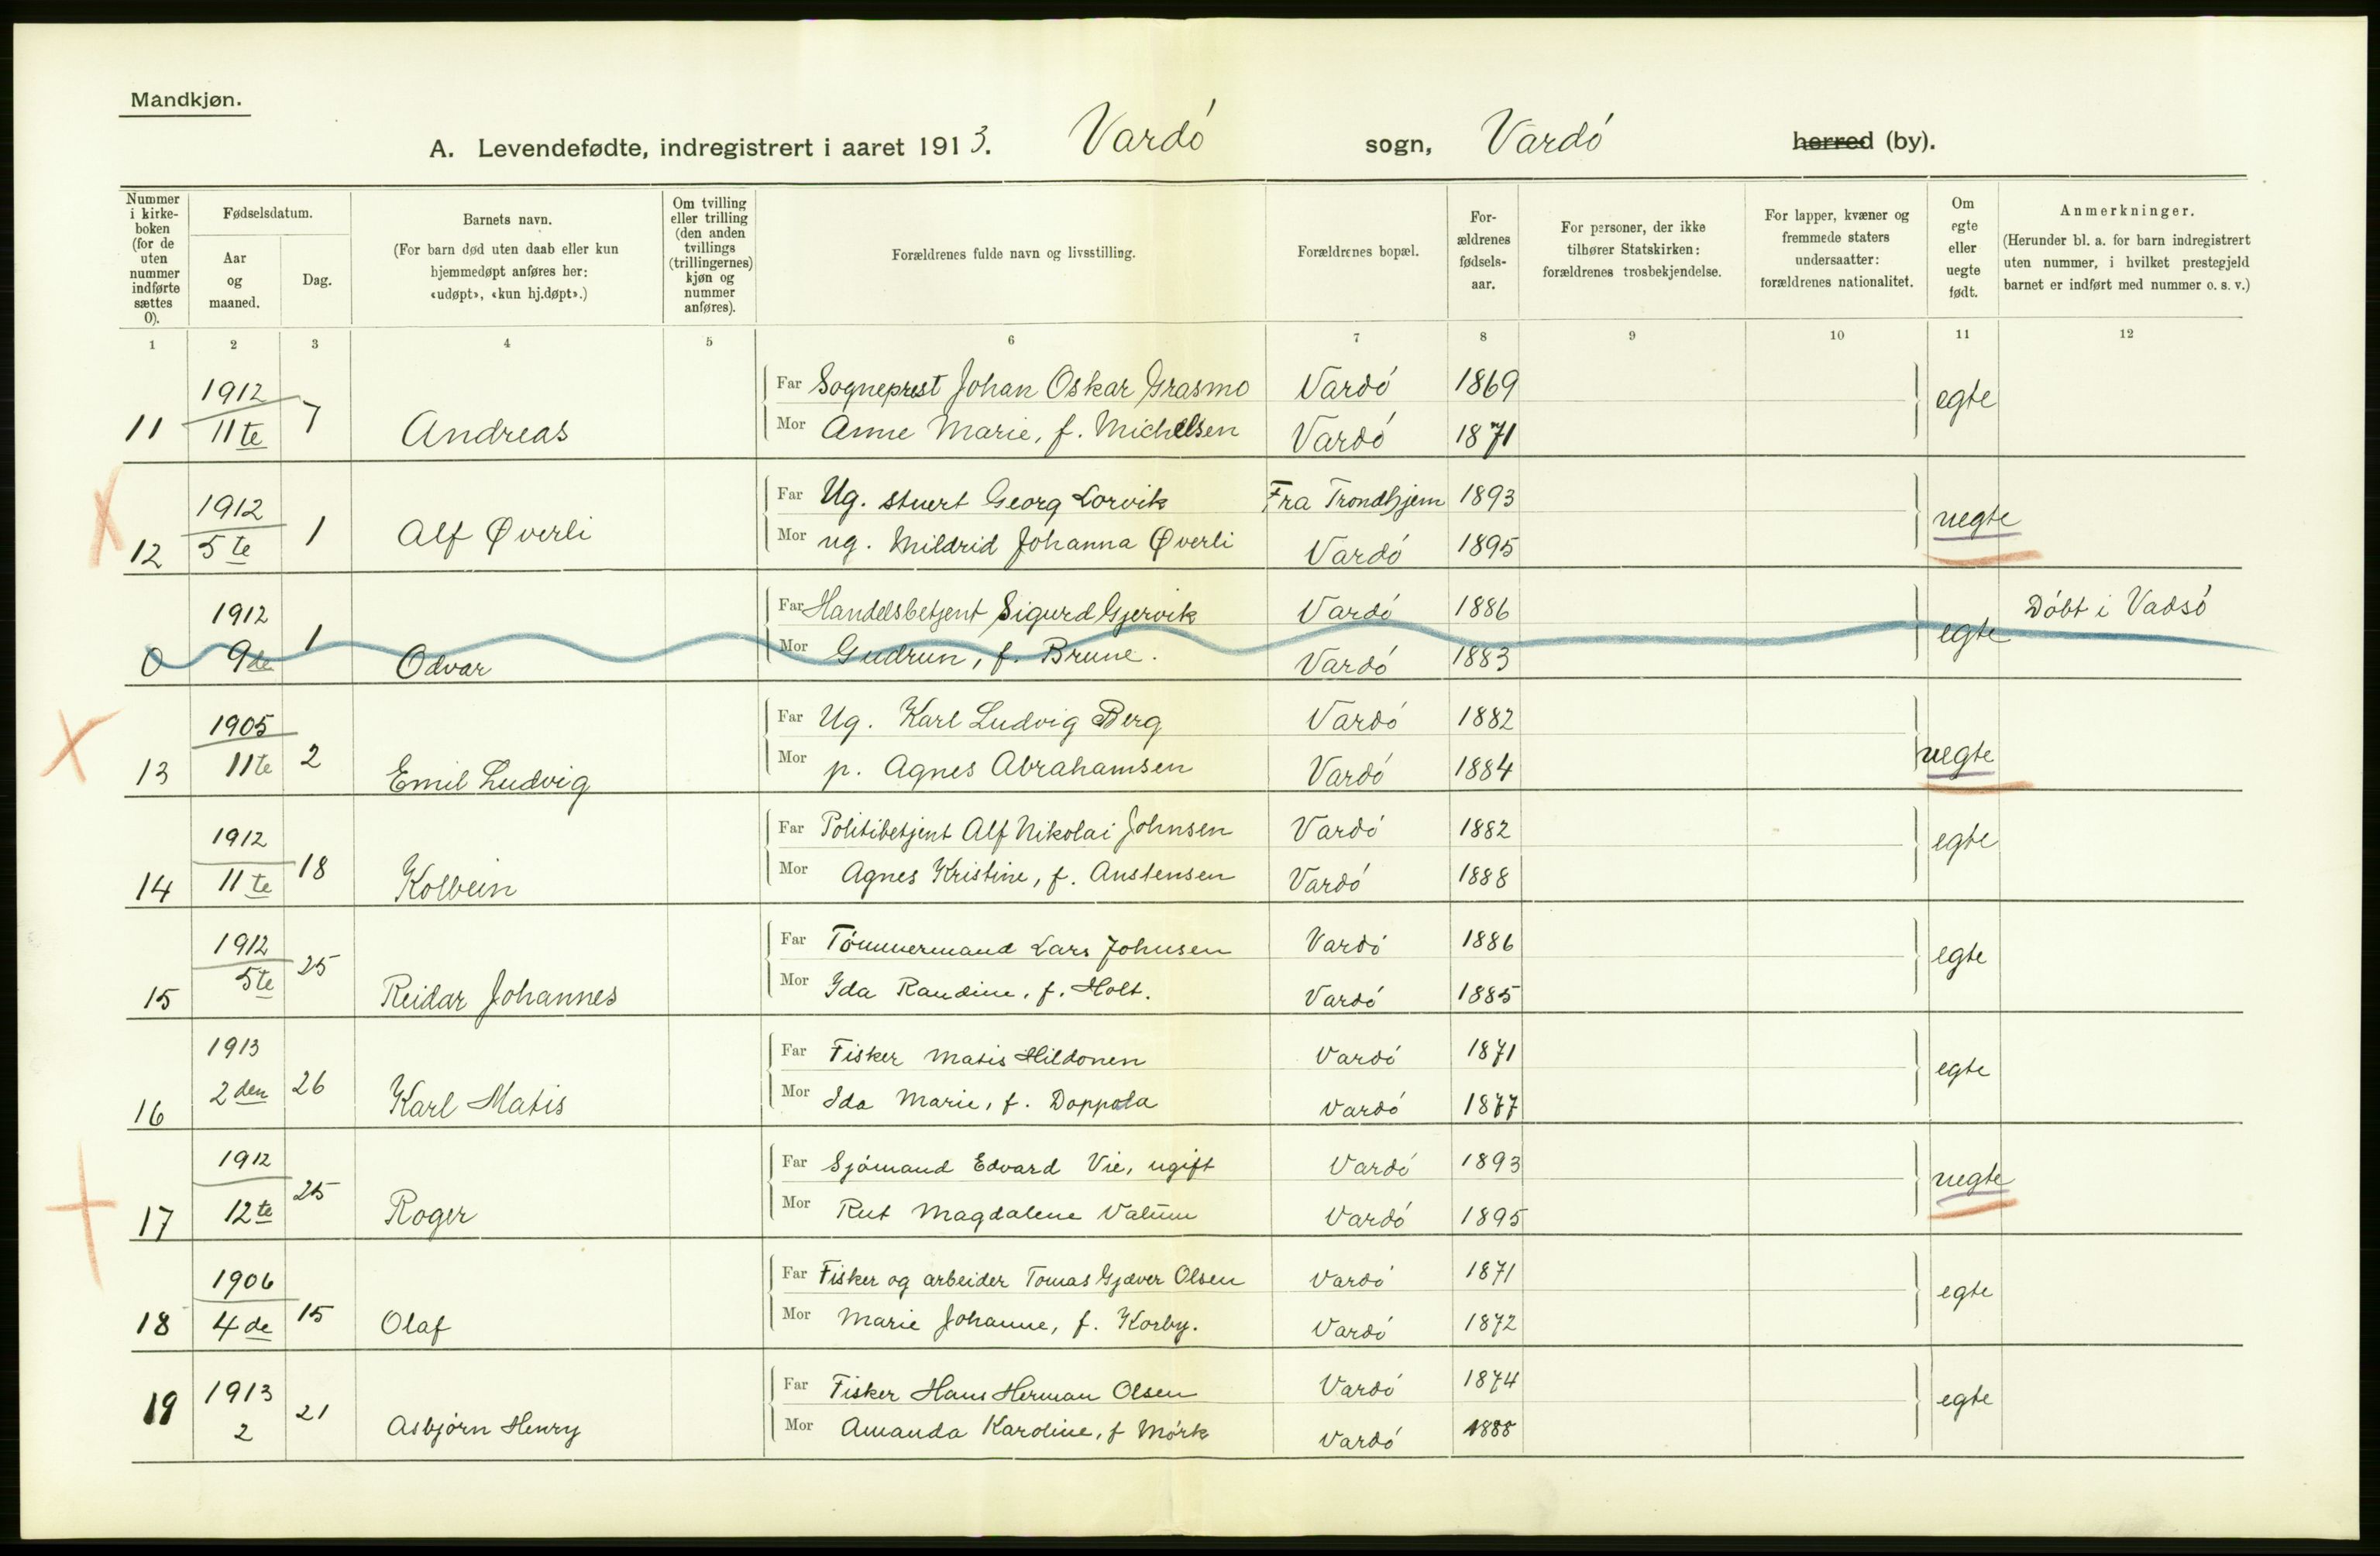 Mandkjøn.
A. Levendefødte, indregistrert i aaret 1913. Vardó sogn, Vardó herred (by).
Nummer i kirke-boken (for de uten nummer indførte sættes 0).
Fødselsdatum.
Aar og maaned.
Dag.
Barnets navn.
(For barn død uten daab eller kun hjemmedøpt anføres her: «udøpt», «kun hj.døpt».)
Om tvilling eller trilling (den anden tvillings (trillingernes) kjøn og nummer anføres).
Forældrenes fulde navn og livsstilling.
Forældrenes bopæl.
For-ældrenes fødsels-aar.
For personer, der ikke tilhører Statskirken: forældrenes trosbekjendelse.
For lapper, kvæner og fremmede staters undersaatter: forældrenes nationalitet.
Om egte eller uegte født.
Anmerkninger.
(Herunder bl. a. for barn indregistrert uten nummer, i hvilket prestegjeld barnet er indført med nummer o. s. v.)
1 2 3 4 5 6 7 8 9 10 11 12
11 1912 11te 7 Andreas
Far Sogneprest Johan Oskar Grasmo Vardó 1869 egte
Mor Anne Marie, f. Michelsen Vardó 1871
12 1912 5te 1 Alf Øverli
Far Ug. stuert Georg Lorvik Fra Trondhjem 1893 uegte
Mor ug. Mildrid Johanna Øverli Vardó 1895
0 1912 9de 1 Odvar
Far Handelsbetjent Sigurd Gjervik Vardó 1886 egte Dóbt i Vadsó
Mor Gudrun, f. Brune. Vardó 1883
13 1905 11te 2 Emil Ludvig
Far Ug. Karl Ludvig Berg Vardó 1882 uegte
Mor p. Agnes Abrahamsen Vardó 1884
14 1912 11te 18 Kolbein
Far Politibetjent Alf Nikolai Johnsen Vardó 1882 egte
Mor Agnes Kristine, f. Austensen Vardó 1888
15 1912 5te 25 Reidar Johannes
Far Tómmermand Lars Johnsen Vardó 1886 egte
Mor Ida Randine, f. Holt. Vardó 1885
16 1913 2den 26 Karl Matis
Far Fisker Matis Hildonen Vardó 1871 egte
Mor Ida Marie, f. Doppola Vardó 1877
17 1912 12te 25 Roger
Far Sjómand Edvard Vie, ugift Vardó 1893 uegte
Mor Rut Magdalene Valum Vardó 1895
18 1906 4de 15 Olaf
Far Fisker og arbeider Tomas Gjæver Olsen Vardó 1871 egte
Mor Marie Johanne, f. Korby. Vardó 1872
19 1913 2 21 Asbjórn Henry
Far Fisker Hans Herman Olsen Vardó 1874 egte
Mor Amanda Karoline, f Mórk Vardó 1888